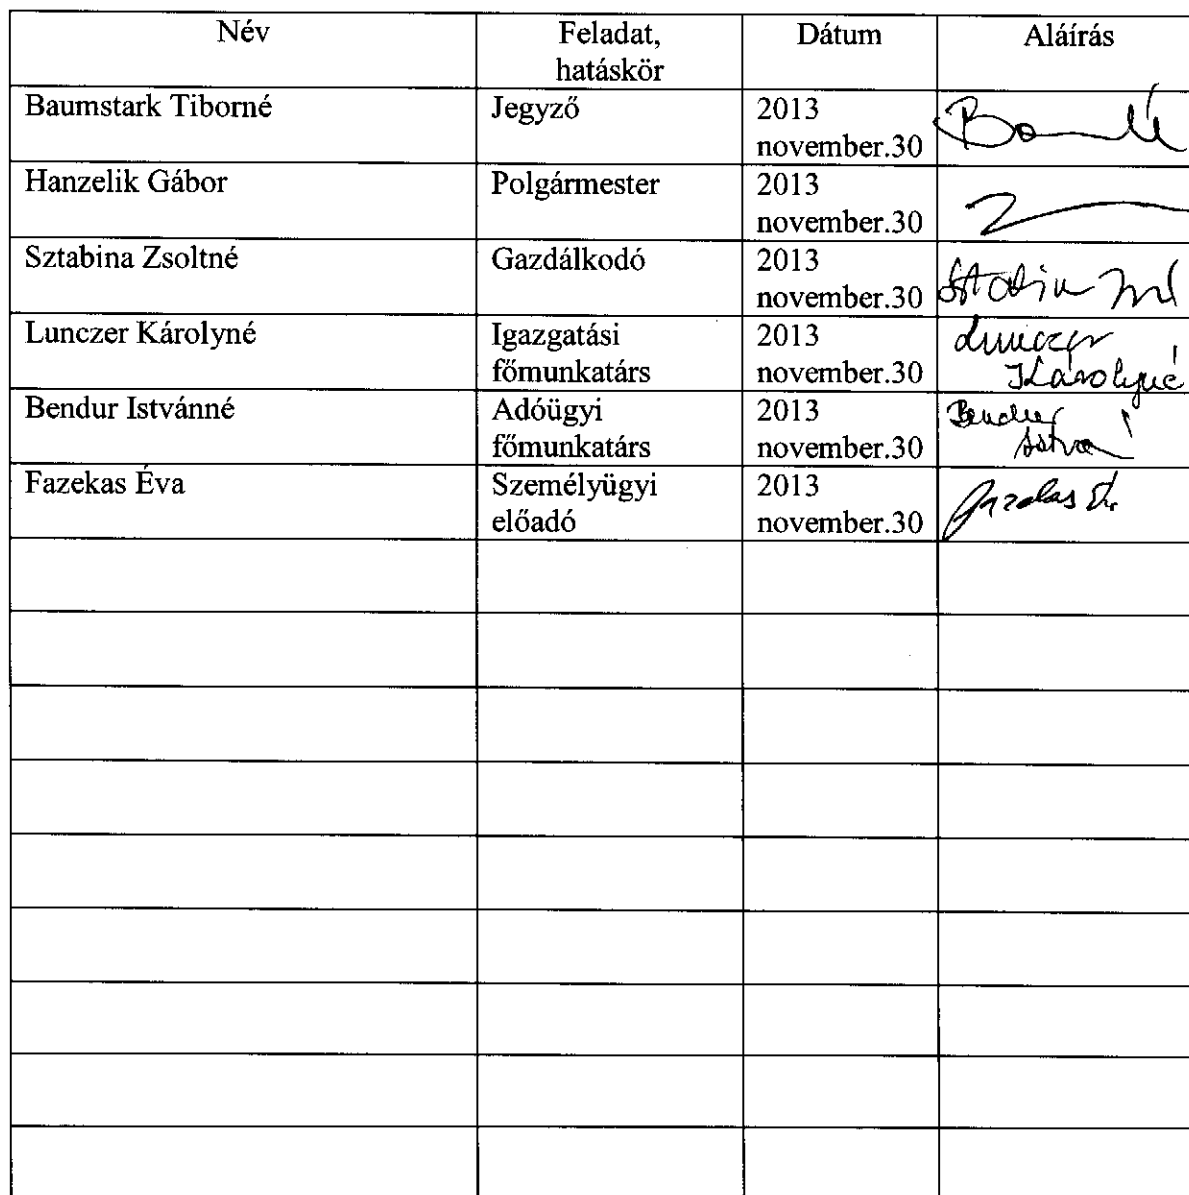 Név
Feladat,
hatáskör
Dátum
Aláírás
Baumstark Tiborné
Jegyző
2013
november.30
Hanzelik Gábor
Polgármester
2013
november.30
Sztabina Zsoltné
Gazdálkodó
2013
november.30
Lunczer Károlyné
Igazgatási
főmunkatárs
2013
november.30
Lunczer
Károlyné
Bendur Istvánné
Adóügyi
főmunkatárs
2013
november.30
Fazekas Éva
Személyügyi
előadó
2013
november.30
Fazekas Éva